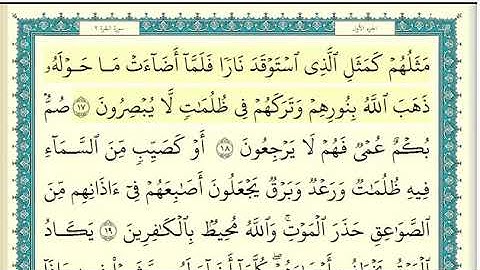 سورة البقرة ٢
الجزء الأول
مَثَلُهُمْ كَمَثَلِ ٱلَّذِى ٱسْتَوْقَدَ نَارًا فَلَمَّآ أَضَآءَتْ مَا حَوْلَهُۥ
ذَهَبَ ٱللَّهُ بِنُورِهِمْ وَتَرَكَهُمْ فِى ظُلُمَـٰتٍ لَّا يُبْصِرُونَ ١٧ صُمٌّۢ
بُكْمٌ عُمْىٌ فَهُمْ لَا يَرْجِعُونَ ١٨ أَوْ كَصَيِّبٍ مِّنَ ٱلسَّمَآءِ
فِيهِ ظُلُمَـٰتٌ وَرَعْدٌ وَبَرْقٌ يَجْعَلُونَ أَصَـٰبِعَهُمْ فِىٓ ءَاذَانِهِم مِّنَ
ٱلصَّوَٰعِقِ حَذَرَ ٱلْمَوْتِ ۚ وَٱللَّهُ مُحِيطٌۢ بِٱلْكَـٰفِرِينَ ١٩ يَكَادُ